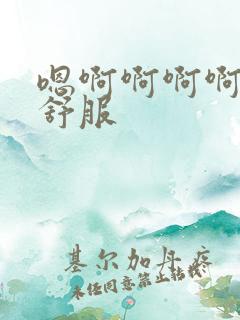 嗯啊啊啊啊
舒服
基尔加丹疼
未经同意禁止转载